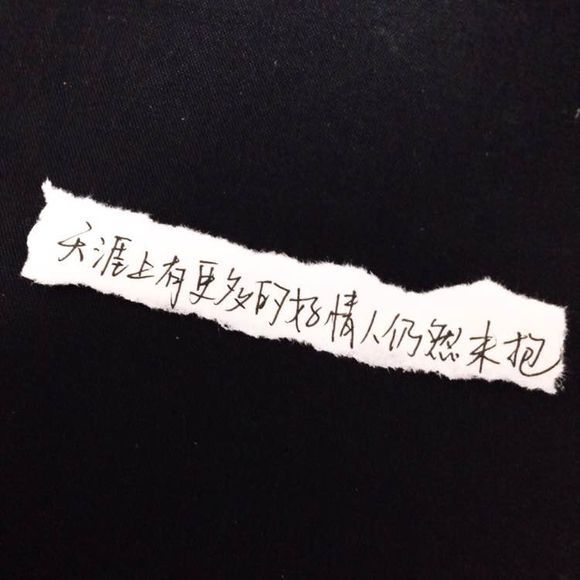 天涯上有更多的好情人仍然未抱